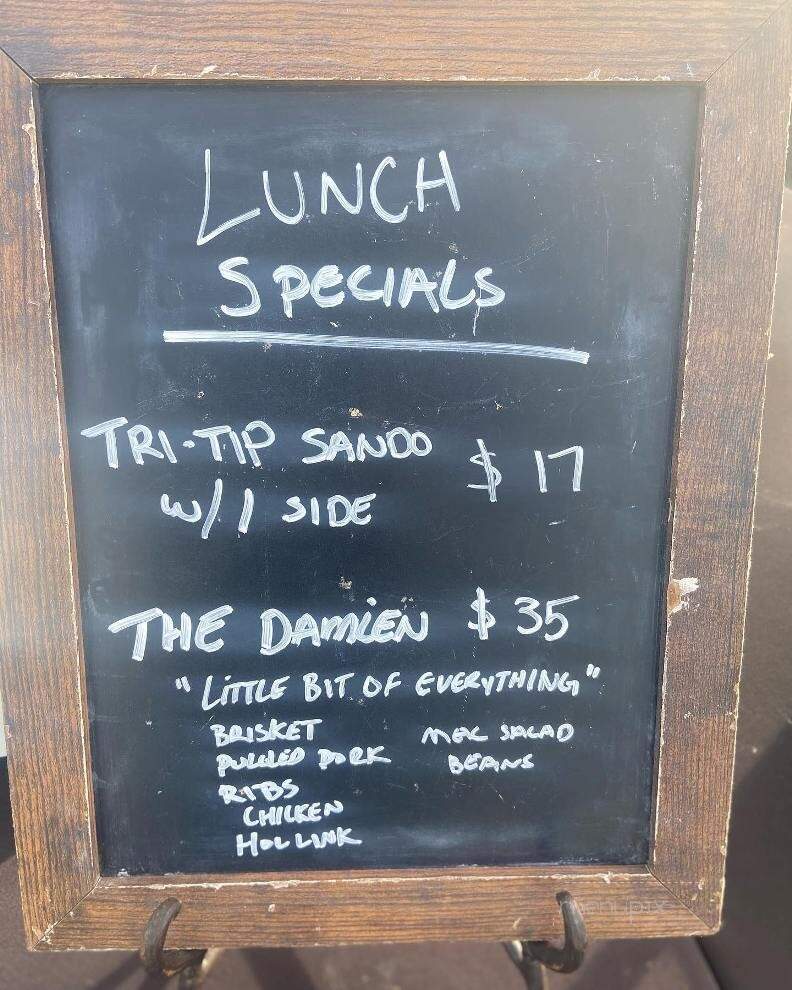 LUNCH
SPECIALS
TRI-TIP SANDO $17
W/1 SIDE
THE DAMIEN $35
"LITTLE BIT OF EVERYTHING"
BRISKET MAC SALAD
PULLED PORK BEANS
RIBS
CHICKEN
HOT LINK
menupix